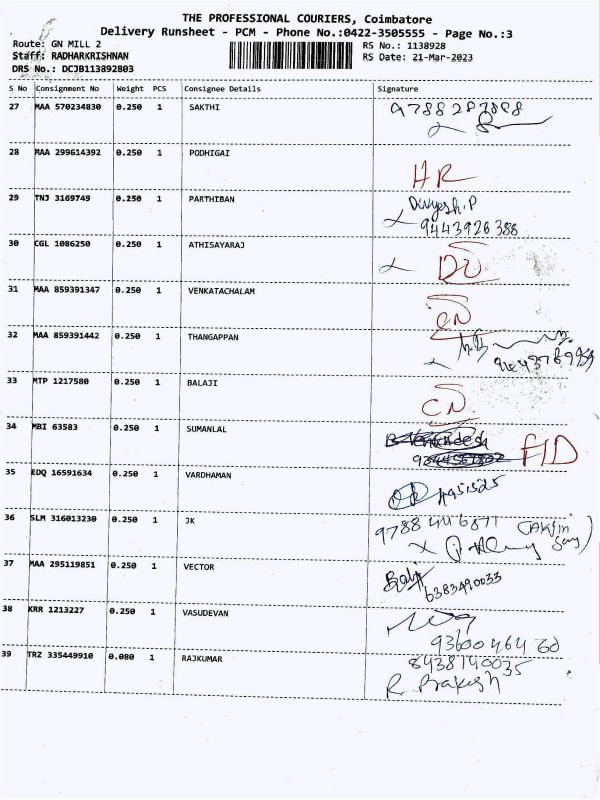 THE PROFESSIONAL COURIERS, Coimbatore
Delivery Runsheet - PCM - Phone No.:0422-3505555 - Page No.:3
Route: GN MILL 2
RS No.: 1138928
Staff: RADHARKRISHNAN
RS Date: 21-Mar-2023
DRS No.: DCJB113892803
S No Consignment No Weight PCS Consignee Details Signature
27 MAA 570234830 0.250 1 SAKTHI
28 MAA 299614392 0.250 1 PODHIGAI HR
29 TNJ 3169749 0.250 1 PARTHIBAN
9443926388
30 CGL 1086250 0.250 1 ATHISAYARAJ
31 MAA 859391347 0.250 1 VENKATACHALAM
32 MAA 859391442 0.250 1 THANGAPPAN
33 MTP 1217580 0.250 1 BALAJI CN
34 MBI 63583 0.250 1 SUMANLAL
35 EDQ 16591634 0.250 1 VARDHAMAN
36 SLM 316013230 0.250 1 JK
37 MAA 295119851 0.250 1 VECTOR
6383490033
38 KRR 1213227 0.250 1 VASUDEVAN
9360046460
39 TRZ 335449910 0.080 1 RAJKUMAR 8438140035
R Prakash